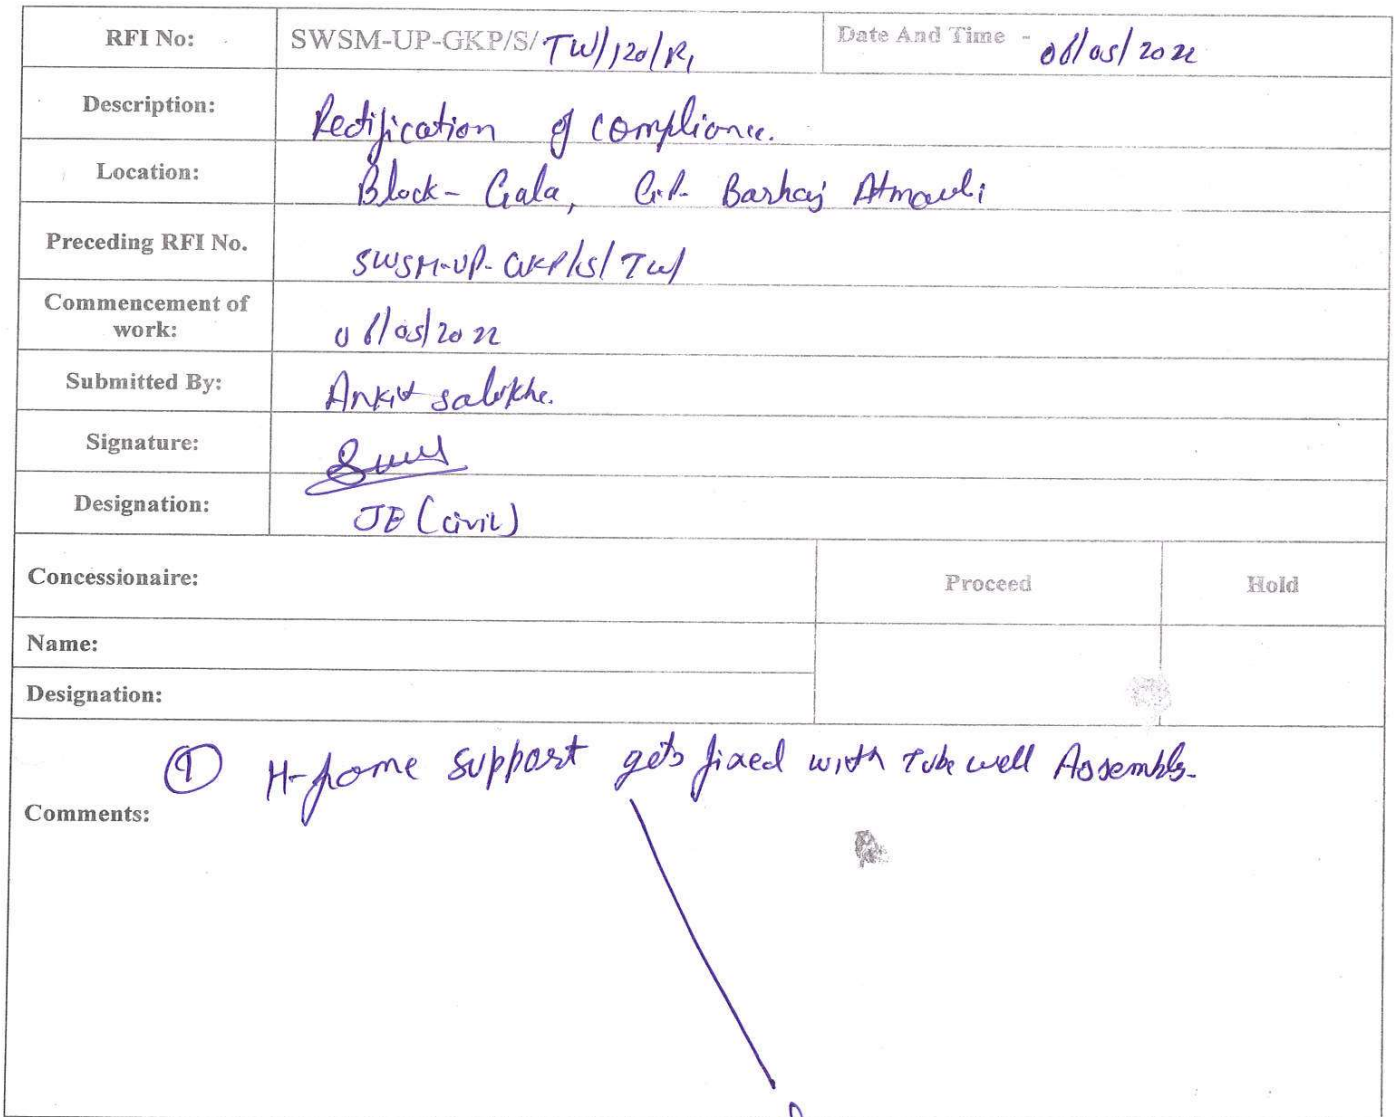 RFI No: SWSM-UP-GKP/S/TW/120/R1 Date And Time - 06/05/2022
Description: Rectification of complience.
Location: Block- Gola, G.P. Barhaj Atmauli
Preceding RFI No. SWSM-UP-GKP/S/TW/
Commencement of
work: 06/05/2022
Submitted By: Ankit salukhe.
Signature:
Designation: JE (civil)
Concessionaire: Proceed Hold
Name:
Designation:
① H-frame support gets fixed with Tube well Assembly-
Comments: